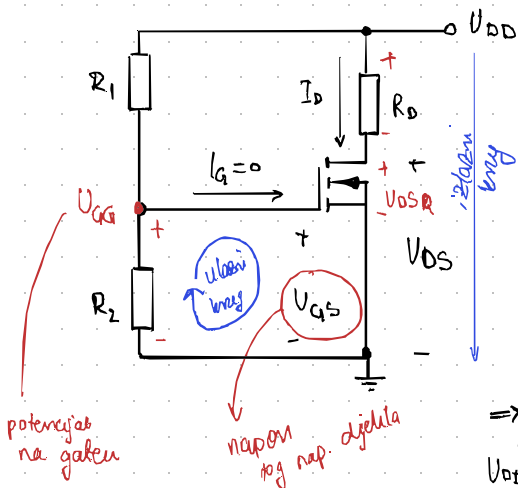 U_DD
R_1
I_D
R_D
I_G=0
U_GG
U_DSQ
U_DS
izlazni
krug
ulazni
krug
R_2
U_GS
potencijal
na gateu
napon
tog nap. djelila
=>